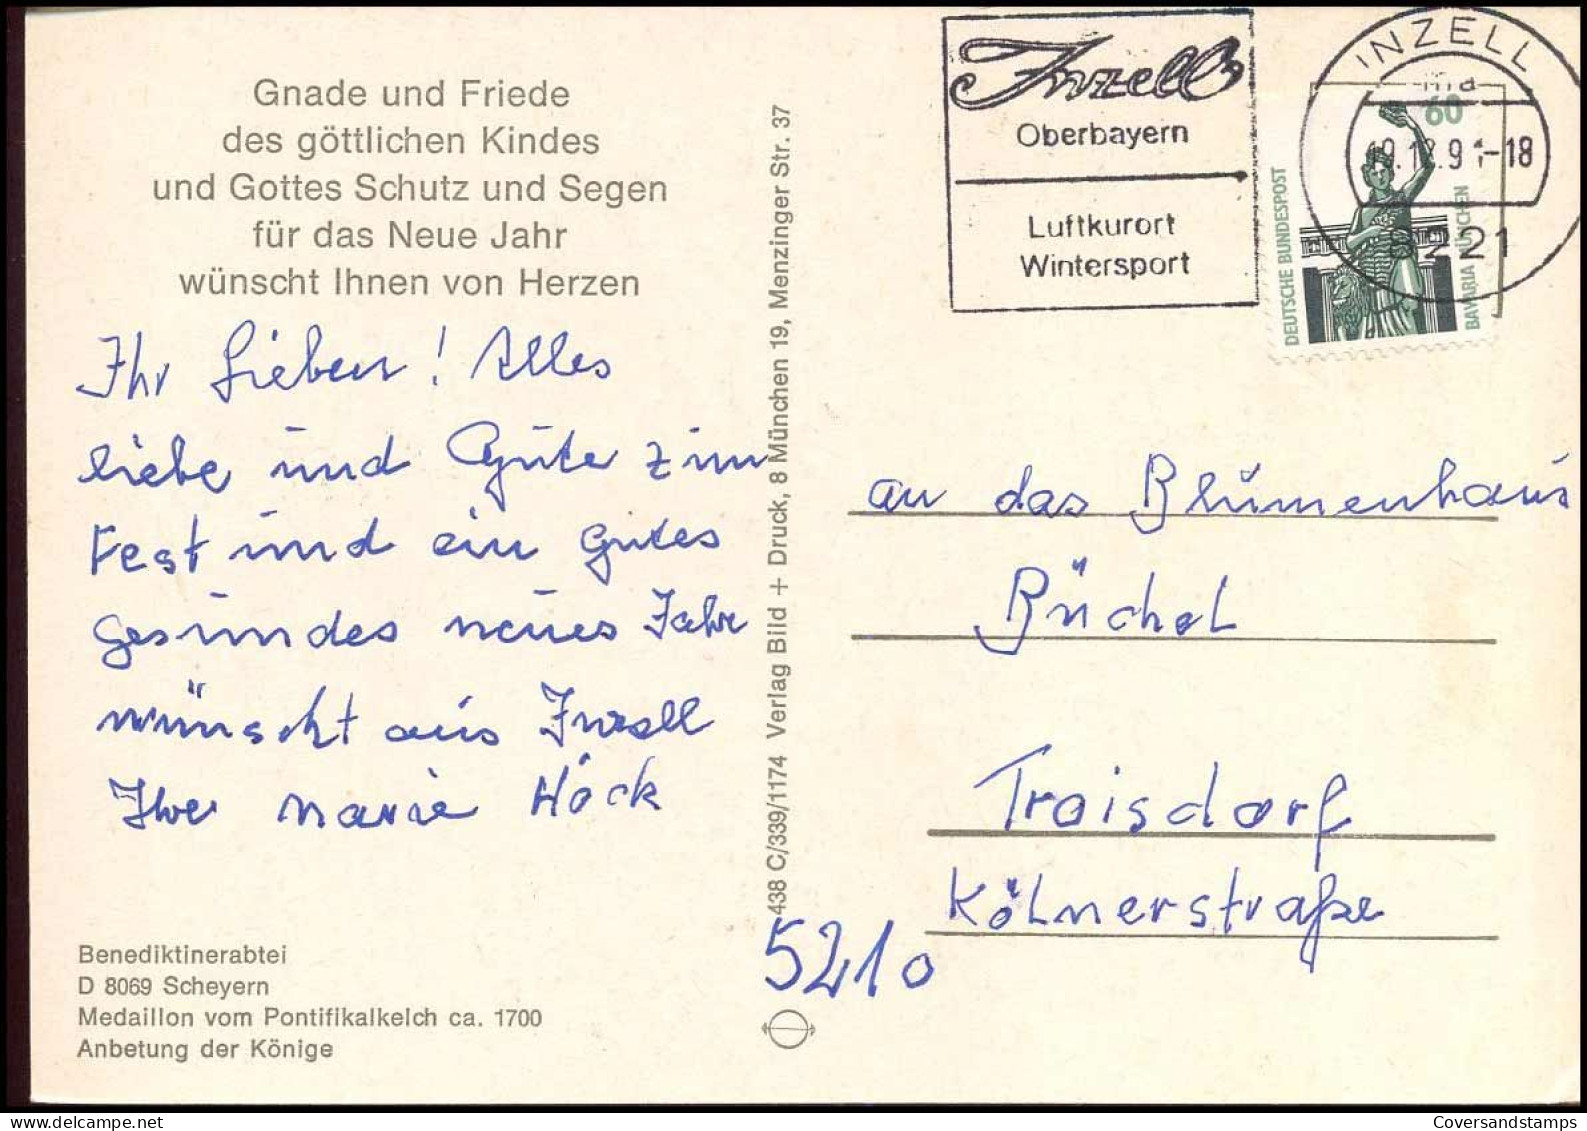 Gnade und Friede
des göttlichen Kindes
und Gottes Schutz und Segen
für das Neue Jahr
wünscht Ihnen von Herzen
Ihr Lieben! Alles
liebe und Gute zum
Fest und ein gutes
gesundes neues Jahr
wünscht aus Inzell
Ihre Marie Höck
Benediktinerabtei
D 8069 Scheyern
Medaillon vom Pontifikalkelch ca. 1700
Anbetung der Könige
438 C/339/1174 Verlag Bild + Druck, 8 München 19, Menzinger Str. 37
Inzell
Oberbayern
Luftkurort
Wintersport
INZELL
12.91-18
8221
60
DEUTSCHE BUNDESPOST
BAVARIA MÜNCHEN
an das Blumenhaus
Büchel
Troisdorf
Kölnerstraße
5210
Coversandstamps